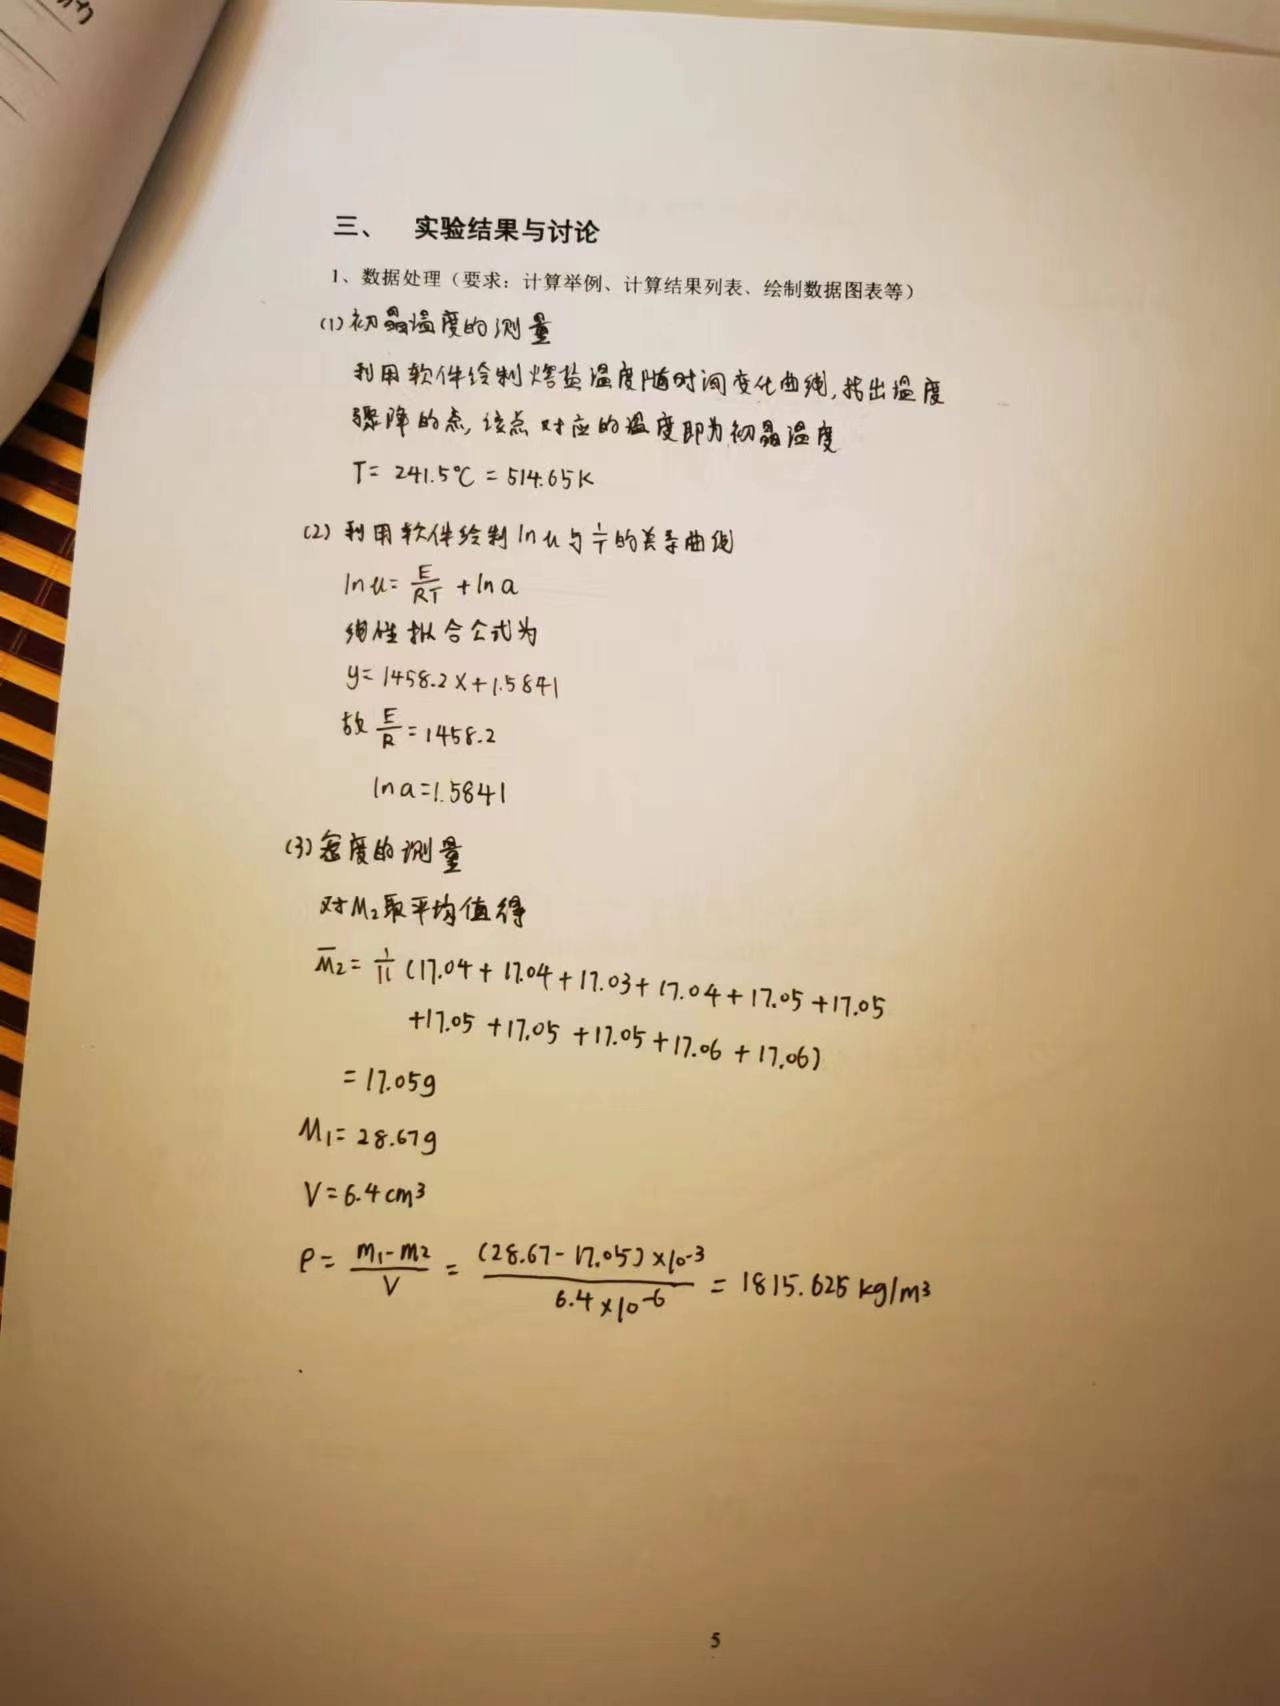 三、 实验结果与讨论
1、数据处理（要求：计算举例、计算结果列表、绘制数据图表等）
(1)初晶温度的测量
利用软件绘制熔盐温度随时间变化曲线,找出温度
骤降的点,该点对应的温度即为初晶温度
T=241.5℃=514.65K
(2)利用软件绘制lnu与1/T的关系曲线
lnu=E/RT+lna
线性拟合公式为
y=1458.2x+1.5841
故 E/R=1458.2
lna=1.5841
(3)密度的测量
对M₂取平均值得
M̄₂=1/11(17.04+17.04+17.03+17.04+17.05+17.05
+17.05+17.05+17.05+17.06+17.06)
=17.05g
M₁=28.67g
V=6.4cm³
ρ=(m₁-m₂)/V=(28.67-17.05)×10⁻³/6.4×10⁻⁶=1815.625kg/m³
5